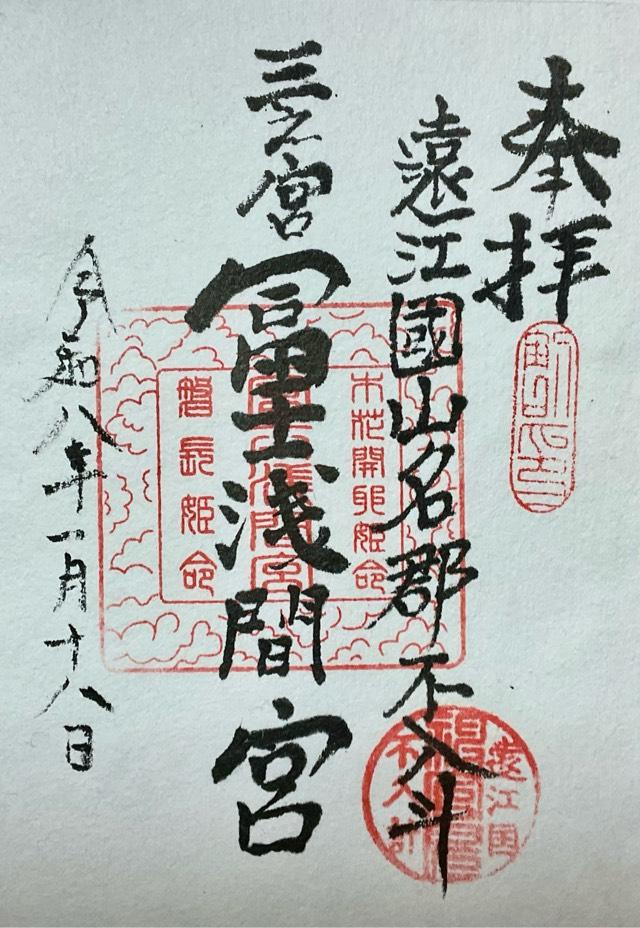 奉拝
遠江國山名郡不入斗
三之宮 冨士浅間宮
令和八年一月十八日
木花開耶姫命
磐長姫命
遠江国